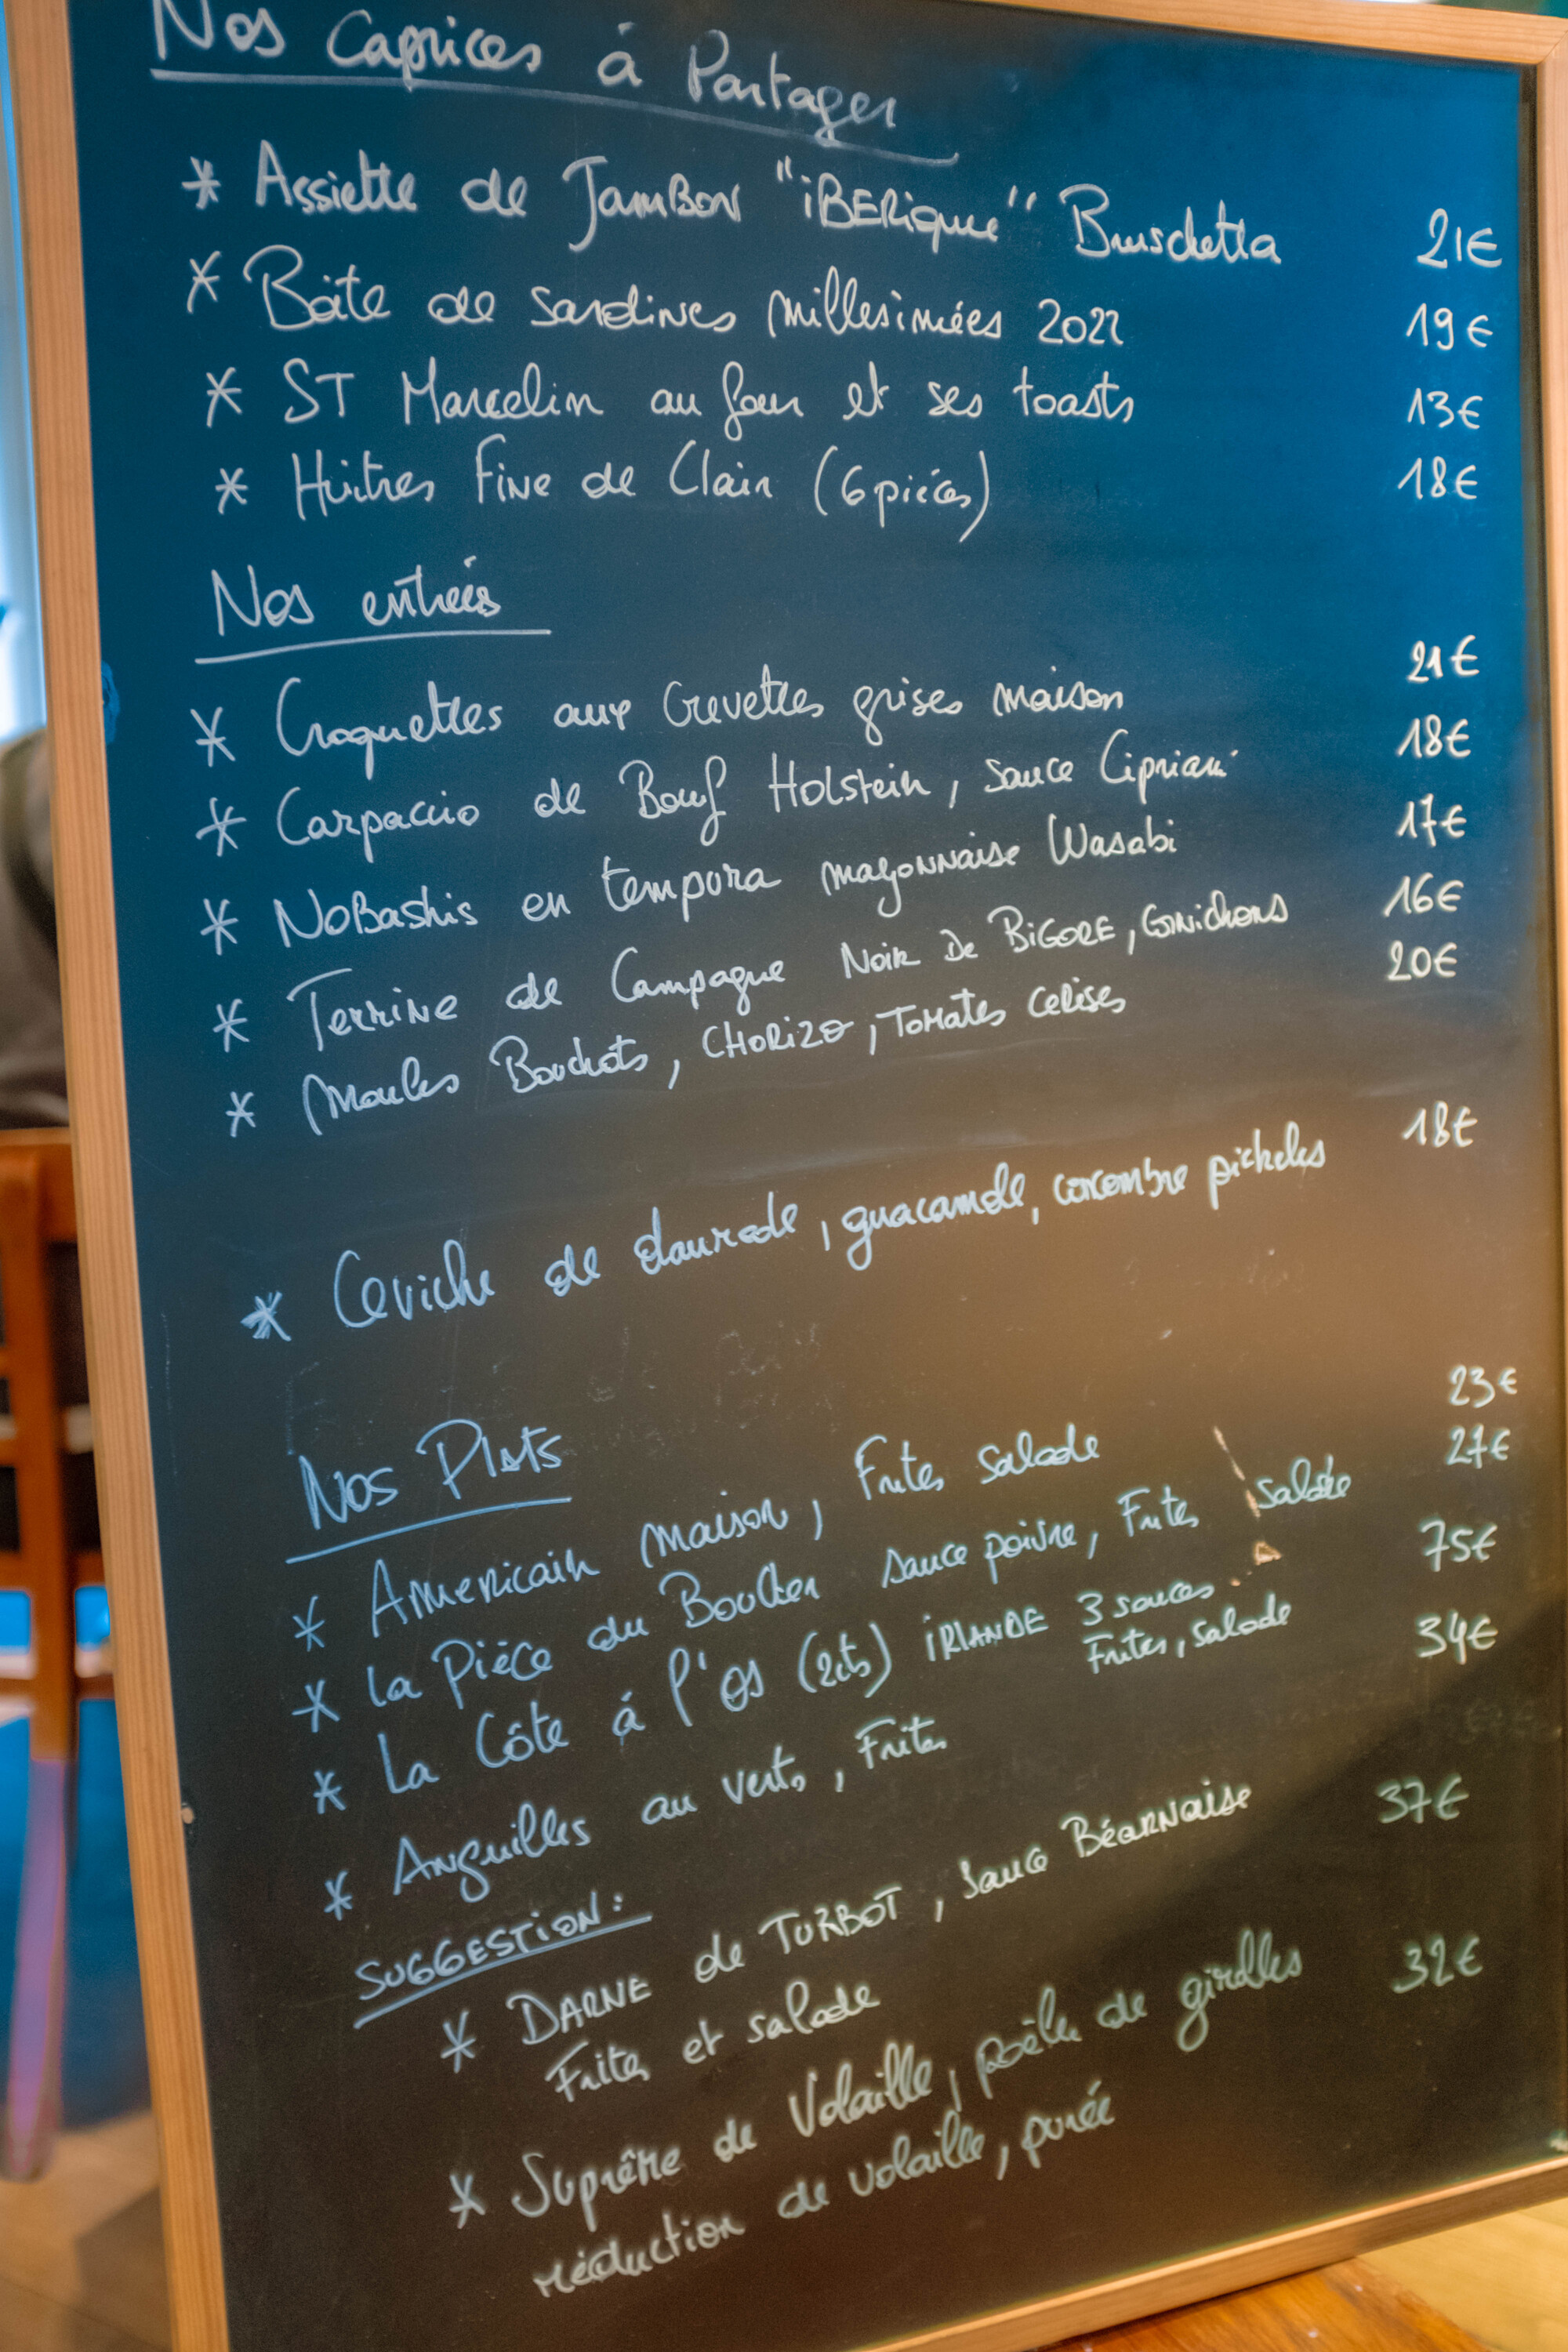 Nos Caprices à Partager
* Assiette de Jambon "iBERique" Bruschetta 21€
* Boîte de sardines millesimées 2022 19€
* ST Marcelin au four et ses toasts 13€
* Huitres Fine de Clair (6 pièces) 18€
Nos entrées
* Croquettes aux Crevettes grises maison 21€
* Carpaccio de Boeuf Holstein, sauce Cipriani 18€
* NoBashis en tempura mayonnaise Wasabi 17€
* Terrine de Campagne Noir De BiGORE, Cornichons 16€
* Moules Bouchots, CHORizo, Tomates cerises 20€
* Ceviche de daurade, guacamole, concombre pickels 18€
Nos Plats
* Americain maison, Frites salade 23€
* La Pièce du Boucher sauce poivre, Frites salade 27€
* La Côte à l'os (2cts) iRLANDE 3 sauces 75€
Frites, salade
* Anguilles au verts, Frites 34€
SUGGESTiON:
* DARNE de TURBOT, Sauce Béarnaise 37€
Frites et salade
* Suprême de Volaille, poêlée de girolles 32€
réduction de volaille, purée